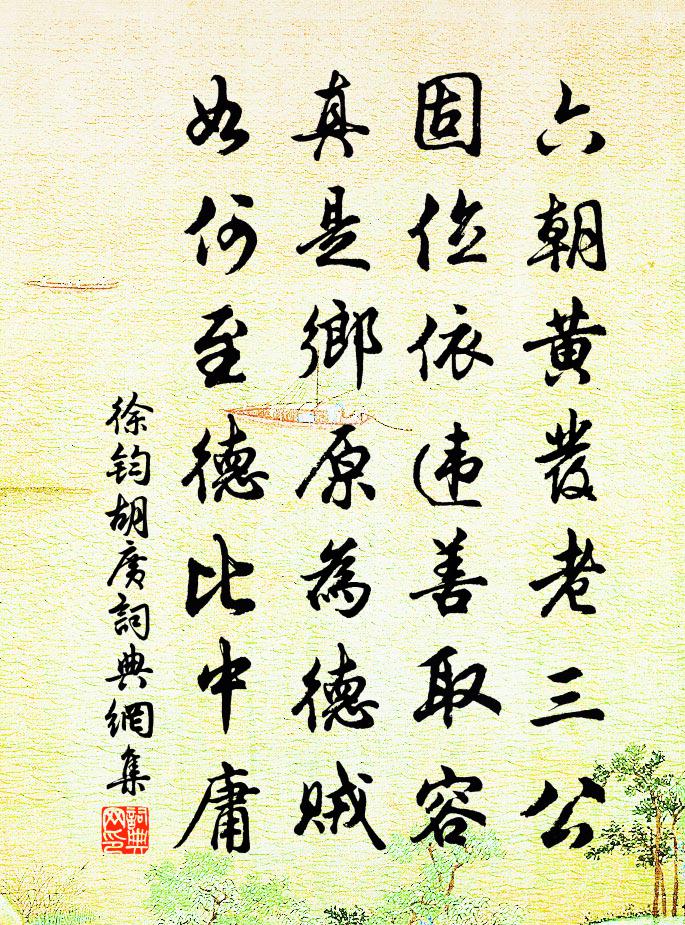 六朝黄发老三公
固位依违善取容
真是鄉原為德贼
如何至德比中庸
徐钧胡廣詞典網集
詞典网印